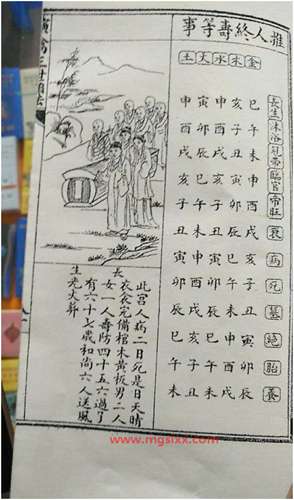 推人終壽等事
金木水火土
長生 沐浴 冠帶 臨官 帝旺 衰 病 死 墓 絕 胎 養
巳午未申酉戌亥子丑寅卯辰
亥子丑寅卯辰巳午未申酉戌
申酉戌亥子丑寅卯辰巳午未
寅卯辰巳午未申酉戌亥子丑
申酉戌亥子丑寅卯辰巳午未
此宮人病二日死是日天晴
衣食完備棺木黃板男二人
長女一人壽防四十五六過了
有六十七歲和尚六人送風
生光大葬
三世相法
www.mgsixx.com